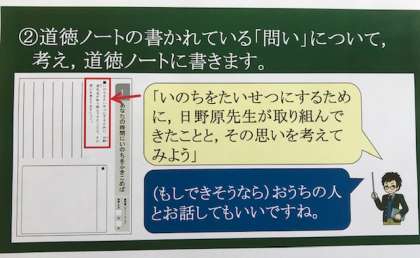 ②道徳ノートの書かれている「問い」について,
考え, 道徳ノートに書きます。
「いのちをたいせつにするため
に, 日野原先生が取り組んで
きたことと, その思いを考えて
みよう」
(もしできそうなら)おうちの人
とお話してもいいですね。
あなたの時間にいのちをふきこめば